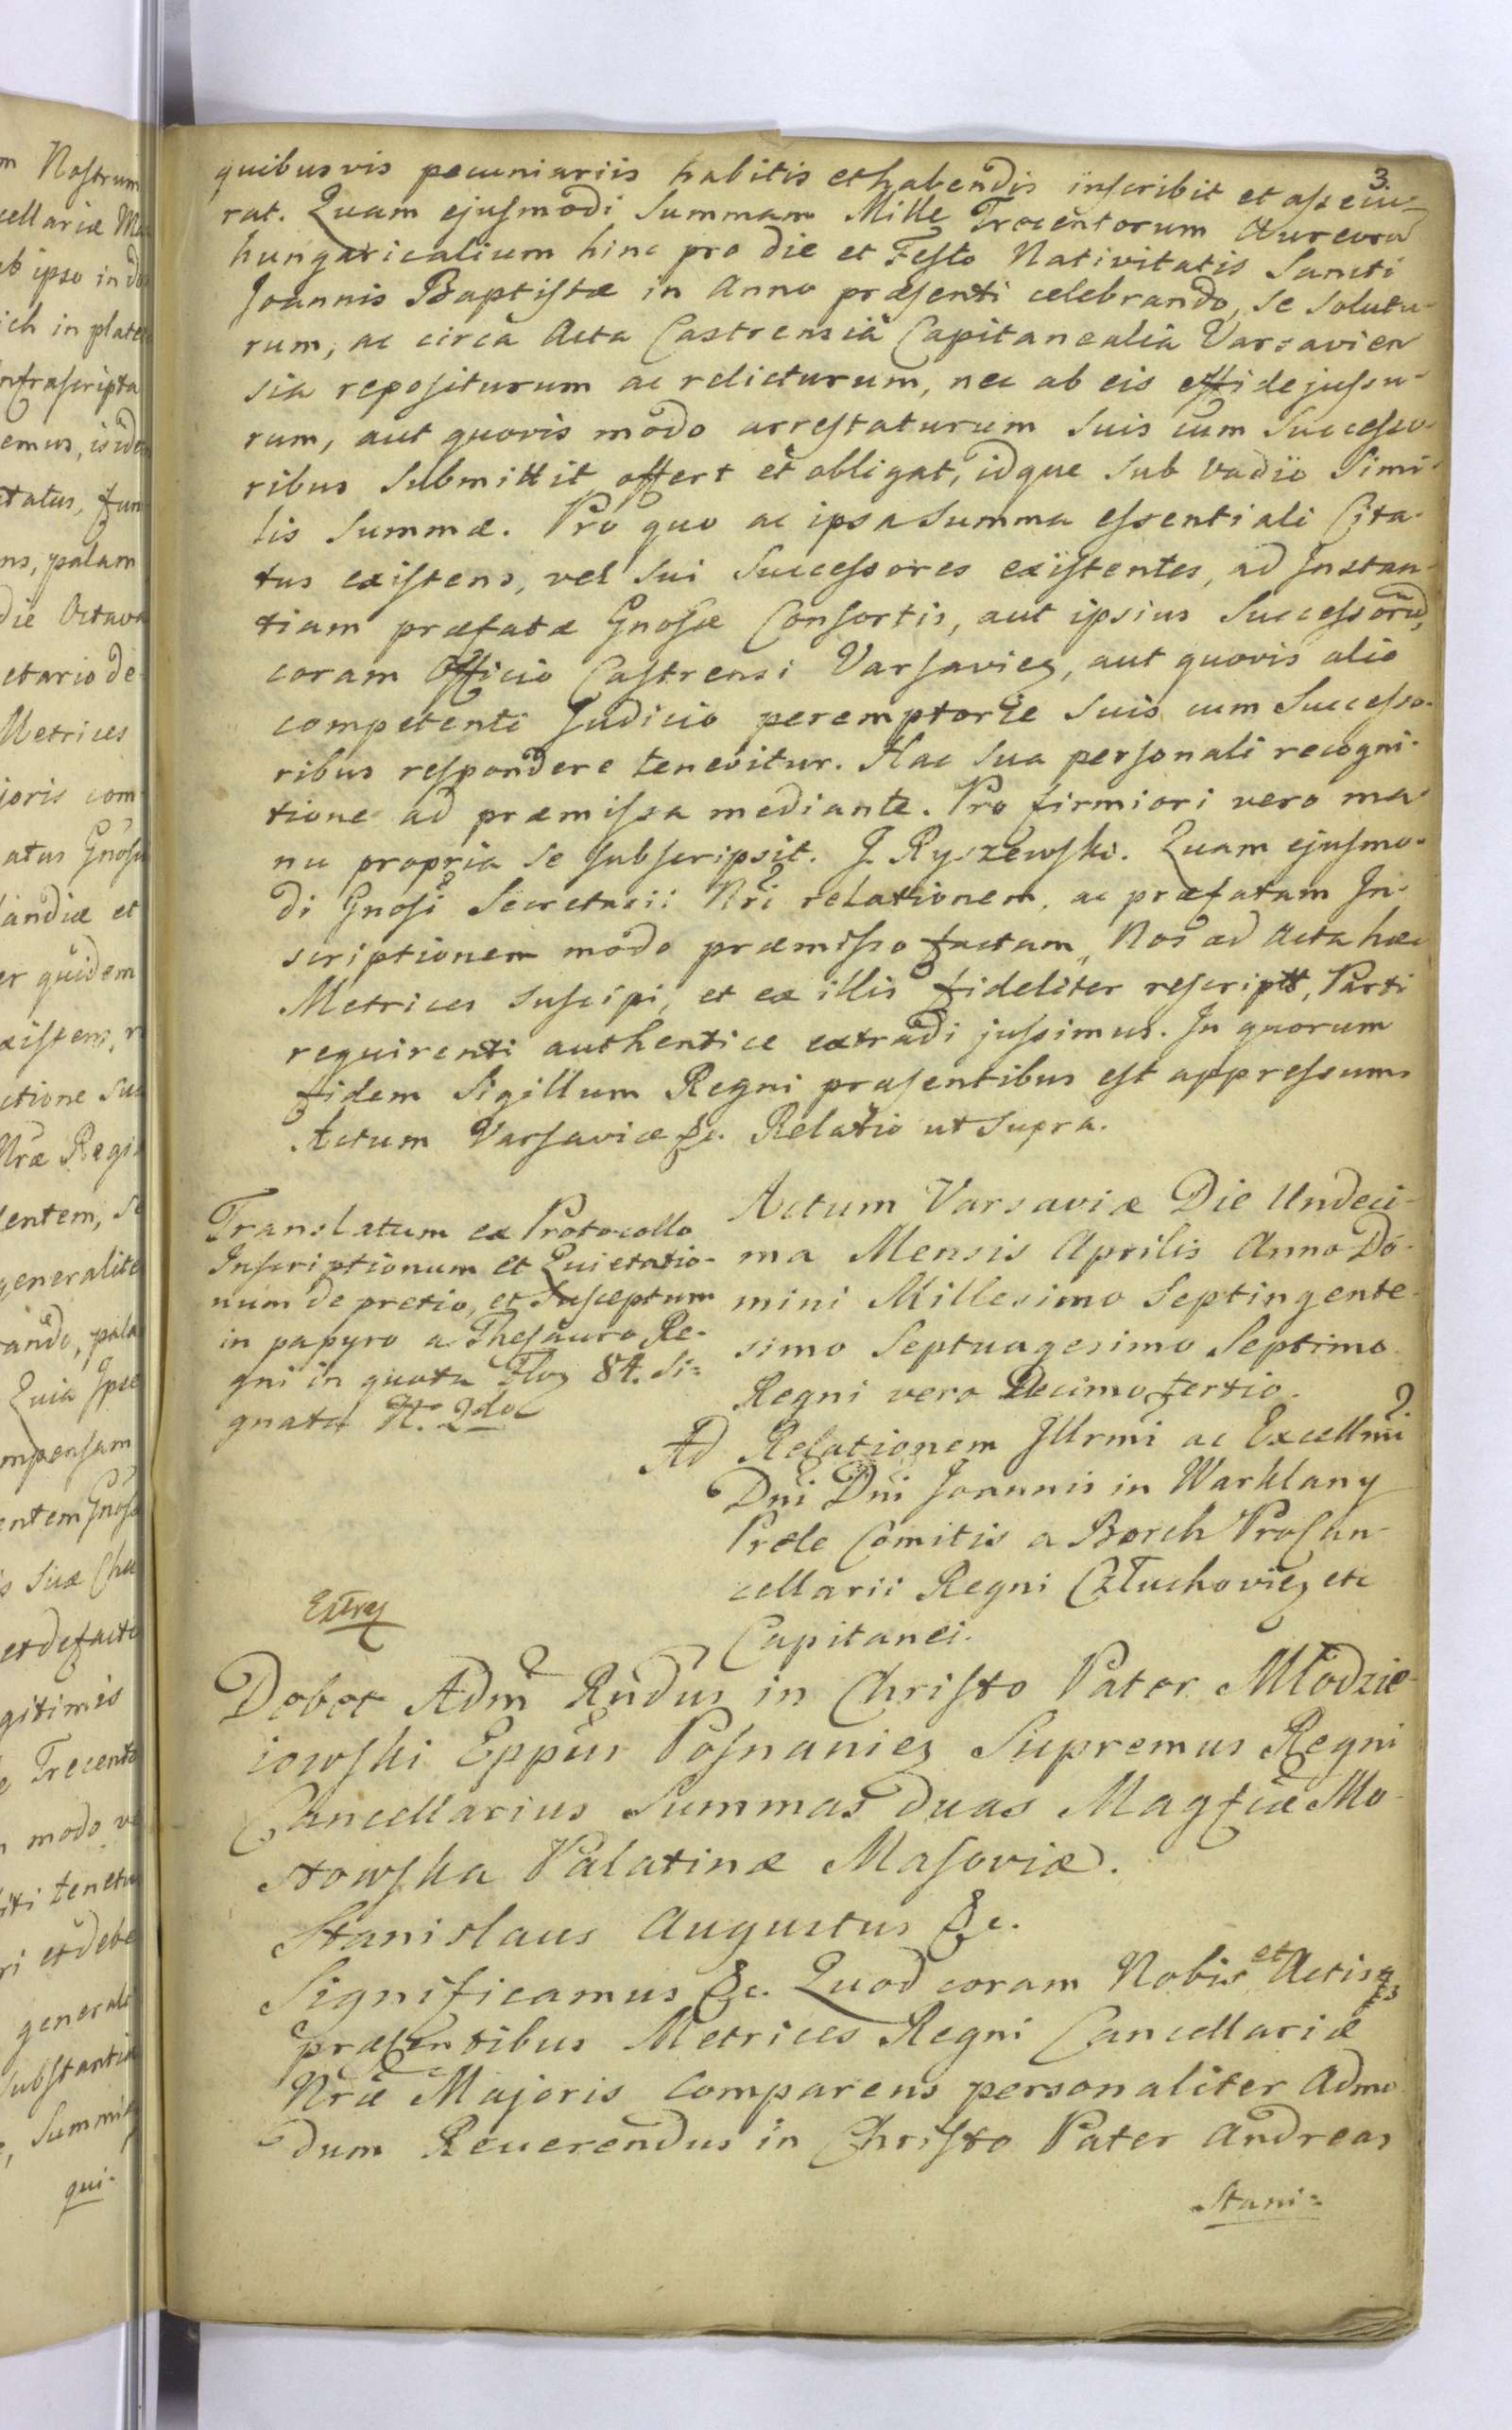 3.
quibusvis pecuniariis habitis et habendis inscribit et assecu-
rat. Quam ejusmodi Summam Mille Trecentorum Aureorũ
hungaricalium hinc pro die et Festo Nativitatis Sancti
Joannis Baptistæ in Anno præsenti celebrando, se solutu-
rum, ac circa Acta Castrensia Capitanealia Varsavien
sia repositurum ac relicturum, nec ab eis effidejussu-
rum, aut quovis modo arrestaturum suis cum Successo-
ribus submittit offert et obligat, idque sub vadio simi-
lis Summæ. Pro quo ac ipsa Summa essentiali Cita-
tus existens, vel sui Successores existentes, ad Instan-
tiam præfatæ Gnosæ Consortis, aut ipsius Successorũ,
coram Officio Castrensi Varsavieñ, aut quovis alio
competenti Judicio peremptorie suis cum Successo-
ribus respondere tenebitur. Hac sua personali recogni-
tione ad præmissa mediante. Pro firmiori vero ma-
nu propria se subscripsit. J. Ryszewski. Quam ejusmo-
di Gnosi Secretarii Nri relationem, ac præfatam In-
scriptionem modo præmisso factam, Nos ad Acta hæc
Metrices suscipi, et ex illis fideliter rescriptt, Parti
requirenti authentice extradi jussimus. In quorum
fidem Sigillum Regni præsentibus est appressum.
Actum Varsaviæ &c. Relatio ut supra.
Translatum ex Protocollo
Inscriptionum et Quietatio-
num de pretio, et Susceptum
in papyro a Thesauro Re-
gni in quota Flor 84. si-
gnata N. 2do
Actum Varsaviæ Die Undeci-
ma Mensis Aprilis Anno Do-
mini Millesimo Septingente-
simo Septuagesimo Septimo
Regni vero Decimo tertio.
Ad Relationem Illrmi ac Excellmi
Dni Dni Joannis in Warklany
Prele Comitis a Borch ProCan-
cellarii Regni Człuchovieñ etc
Capitanei.
Debet Adm Rndus in Christo Pater Młodzie-
iowski Eppus Posnanieñ Supremus Regni
Cancellarius Summas duas Magfcæ Mo-
stowska Palatinæ Masoviæ.
Stanislaus Augustus &c.
Significamus &c. Quod coram Nobis et Actis
præsentibus Metrices Regni Cancellariæ
Nræ Majoris Comparens personaliter Admo
dum Reuerendus in Christo Pater Andreas
Stani=